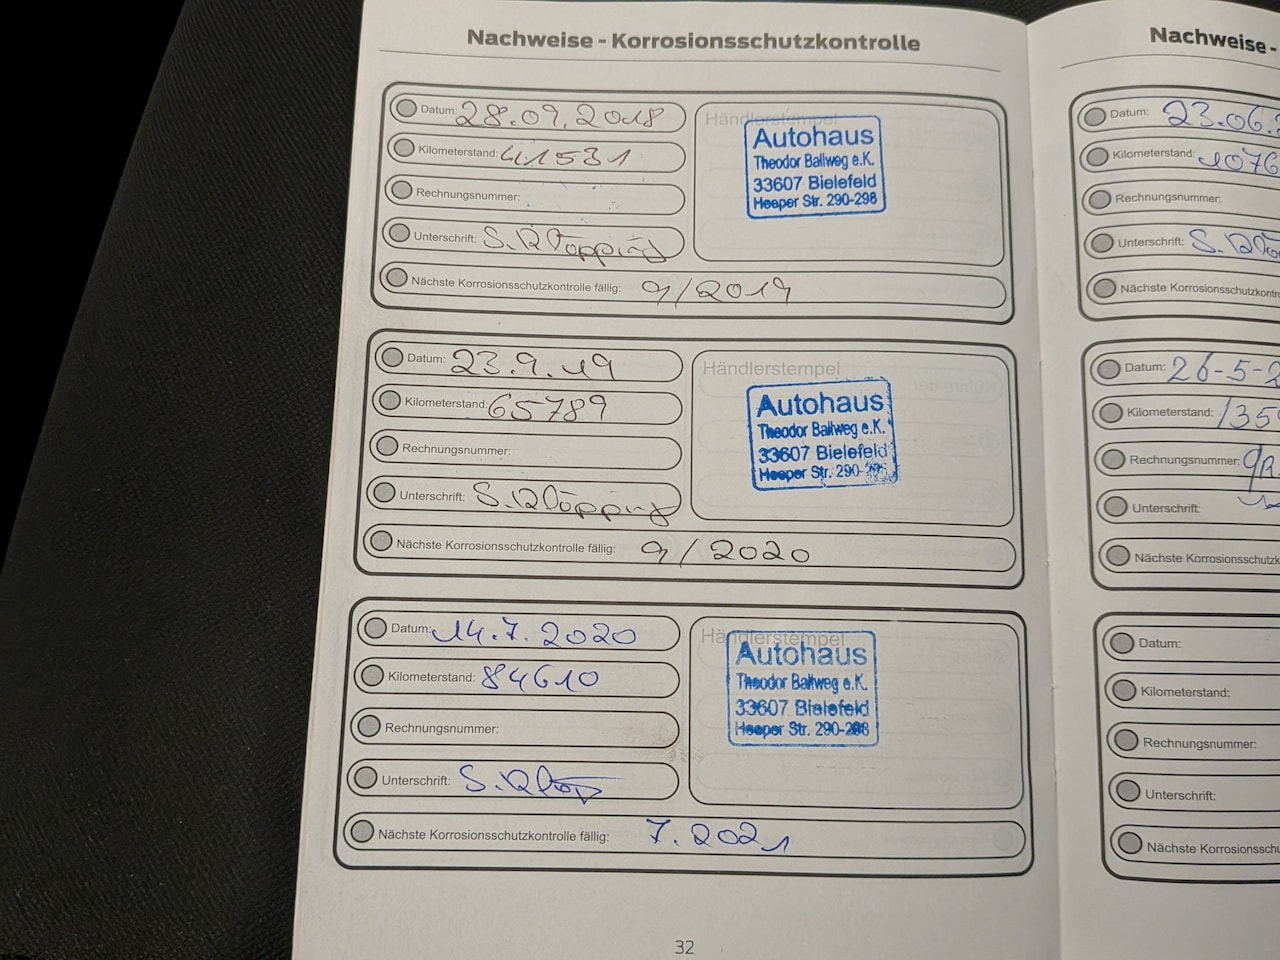 Nachweise - Korrosionsschutzkontrolle
Datum: 28.09.2018
Kilometerstand: 41531
Rechnungsnummer:
Unterschrift: S. Klöpping
Nächste Korrosionsschutzkontrolle fällig: 9/2019
Händlerstempel
Autohaus
Theodor Ballweg e.K.
33607 Bielefeld
Heeper Str. 290-298
Datum: 23.9.19
Kilometerstand: 65789
Rechnungsnummer:
Unterschrift: S. Klöpping
Nächste Korrosionsschutzkontrolle fällig: 9/2020
Händlerstempel
Autohaus
Theodor Ballweg e.K.
33607 Bielefeld
Heeper Str. 290-298
Datum: 14.7.2020
Kilometerstand: 84610
Rechnungsnummer:
Unterschrift: S. Klöp
Nächste Korrosionsschutzkontrolle fällig: 7.2021
Händlerstempel
Autohaus
Theodor Ballweg e.K.
33607 Bielefeld
Heeper Str. 290-298
32
Nachweise -
Datum: 23.06.
Kilometerstand: 1076
Rechnungsnummer:
Unterschrift: S. Klö
Nächste Korrosionsschutzkontr
Datum: 26-5-2
Kilometerstand: 135
Rechnungsnummer:
Unterschrift:
Nächste Korrosionsschutzk
Datum:
Kilometerstand:
Rechnungsnummer:
Unterschrift:
Nächste Korrosionsschu